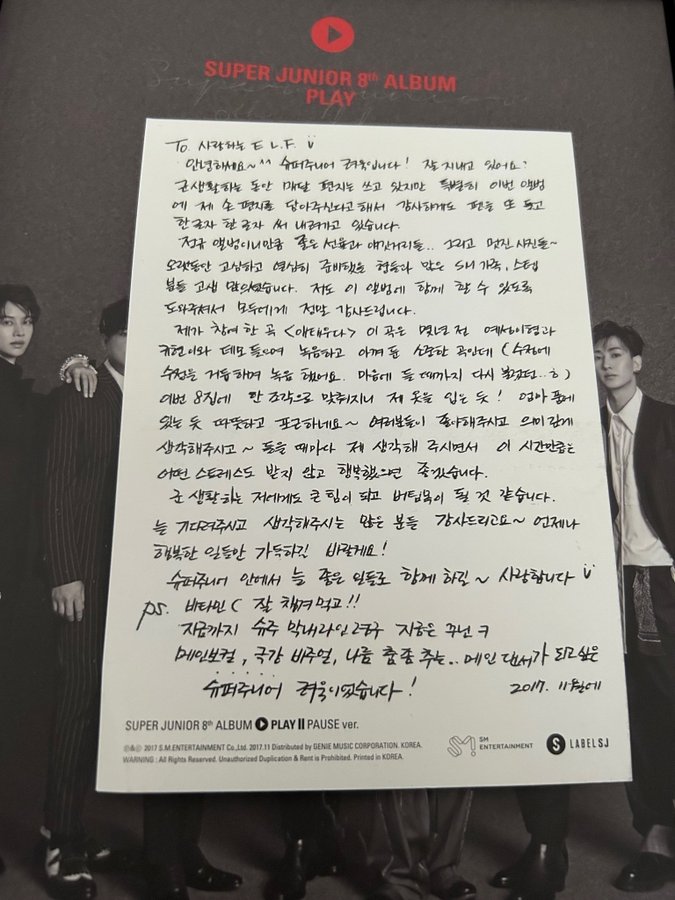 SUPER JUNIOR 8th ALBUM
PLAY
To 사랑하는 E.L.F. ü
안녕하세요~^^ 슈퍼주니어 려욱입니다! 잘 지내고 있어요?
군생활하는 동안 매달 편지는 쓰고 있지만 특별히 이번 앨범
에 제 손 편지를 담아주신다고해서 감사하게도 펜을 또 들고
한글자 한글자 써 내려가고 있습니다.
정규 앨범이니만큼 좋은 선율과 얘깃거리들.. 그리고 멋진 사진들~
오랫동안 고심하고 열심히 준비했을 형들과 많은 SM 가족, 스텝
분들 고생 많으셨습니다. 저도 이 앨범에 함께 할 수 있도록
도와주셔서 모두에게 정말 감사드립니다.
제가 참여한 곡 <애태우다> 이 곡은 몇년 전 예성이형과
규현이와 데모 들으며 녹음하고 아껴 둔 소중한 곡인데 (수정에
수정을 거듭하며 녹음 했어요. 마음에 들 때까지 다시 불렀던..ㅎ)
이번 8집에 딱 조각으로 맞춰지니 제 옷을 입는 듯! 엄마 품에
있는 듯 따뜻하고 포근하네요~ 여러분들이 좋아해주시고 의미 깊게
생각해주시고~ 들을 때마다 제 생각해 주시면서 이 시간만큼은
어떤 스트레스도 받지 않고 행복했으면 좋겠습니다.
군 생활하는 저에게도 큰 힘이 되고 버팀목이 될 것 같습니다.
늘 기다려주시고 생각해주시는 많은 분들 감사드리고요~ 언제나
행복한 일들만 가득하길 바랄게요!
슈퍼주니어 안에서 늘 좋은 일들로 함께 하길~ 사랑합니다 ü
ps. 비타민C 잘 챙겨먹고!!
지금까지 슈주 막내라인 려욱 지금은
메인보컬, 극강 비주얼, 나름 춤 좀 추는.. 메인 댄서가 되고싶은
슈퍼주니어 려욱이었습니다! 2017. 11월에
SUPER JUNIOR 8th ALBUM PLAY PAUSE ver.
Ⓟ&© 2017 S.M.ENTERTAINMENT Co.,Ltd. 2017.11 Distributed by GENIE MUSIC CORPORATION. KOREA.
WARNING : All Rights Reserved. Unauthorized Duplication & Rent is Prohibited. Printed in KOREA.
SM ENTERTAINMENT
LABELSJ